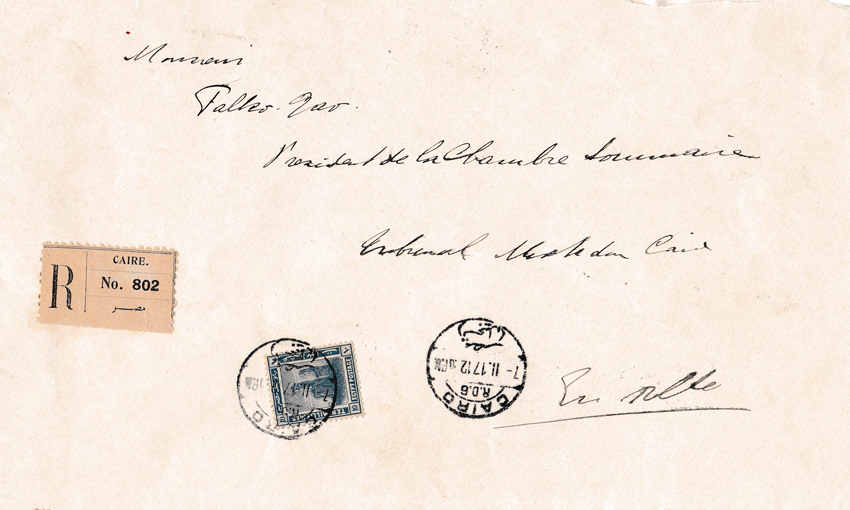 Monsieur
Falko. Gav.
President de la Chambre Sommaire
Tribunal Mixte du Caire
CAIRE.
R No. 802
مصر
7- II. 17 12
R.D.6
CAIRO
En Ville